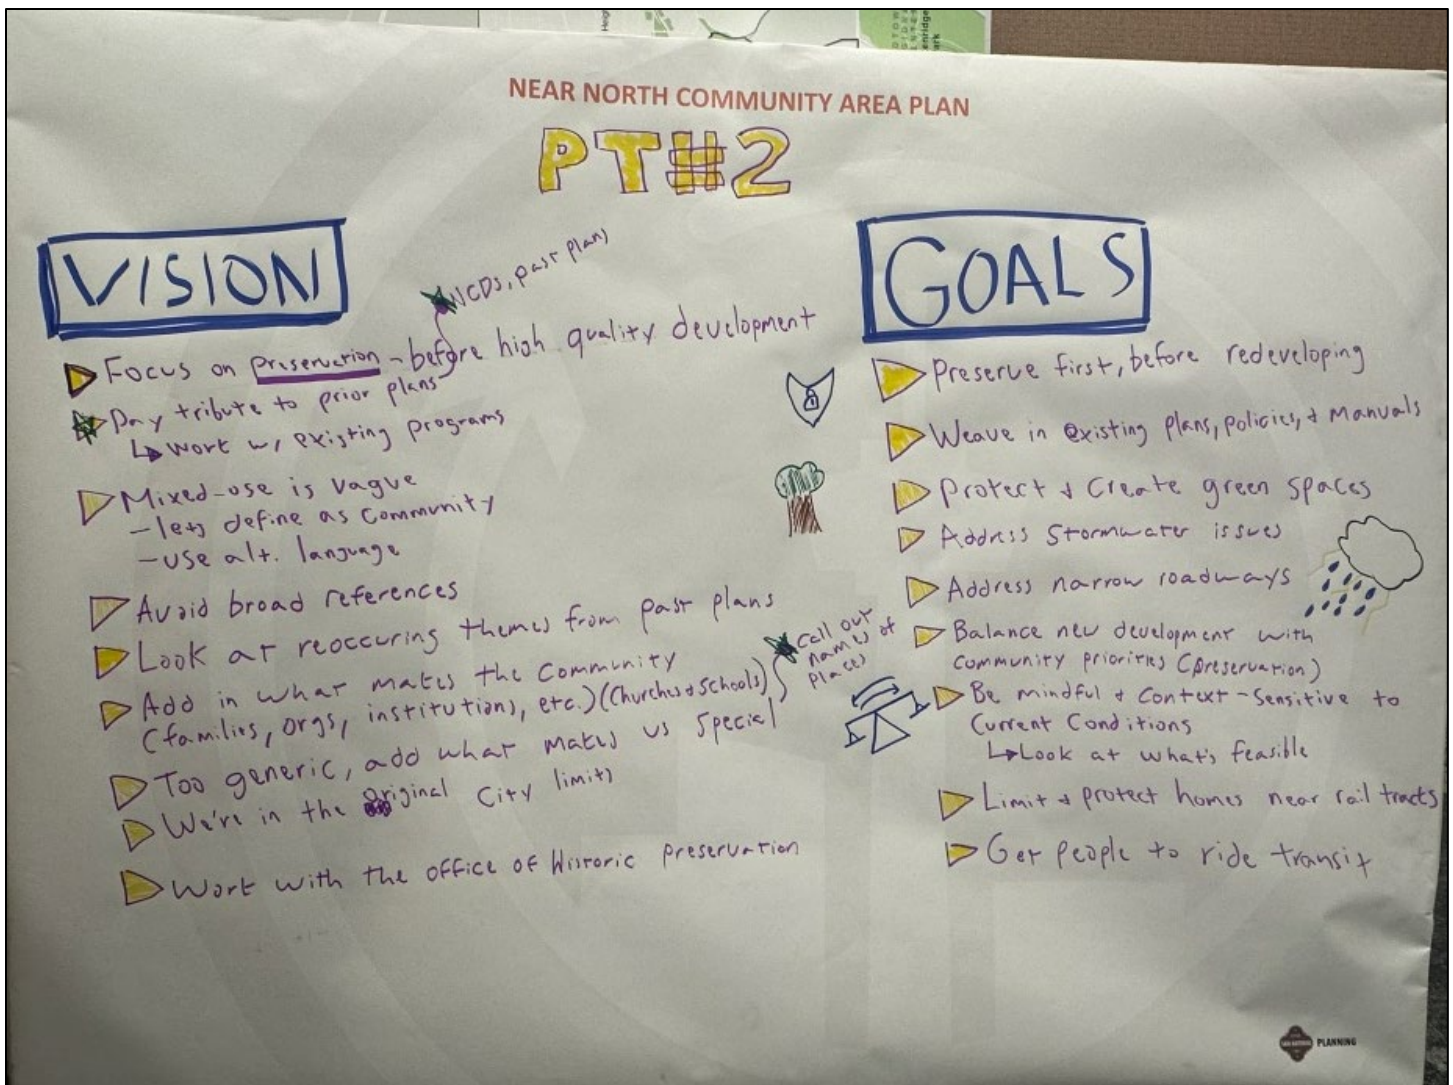 NEAR NORTH COMMUNITY AREA PLAN
PT#2
VISION
NCDs, past plans
Focus on preservation - before high quality development
Pay tribute to prior plans
work w/ existing programs
Mixed-use is vague
- lets define as community
- use alt. language
Avoid broad references
Look at reoccuring themes from past plans
Add in what makes the community
(families, orgs, institutions, etc.) (Churches & Schools)
call out
names of
places
Too generic, add what makes us special
We're in the original City limits
Work with the office of Historic preservation
GOALS
Preserve first, before redeveloping
Weave in existing plans, policies, & manuals
Protect & Create green spaces
Address Stormwater issues
Address narrow roadways
Balance new development with
community priorities (preservation)
Be mindful & Context-Sensitive to
Current Conditions
Look at what's feasible
Limit & protect homes near rail tracts
Get people to ride transit
SAN ANTONIO
PLANNING